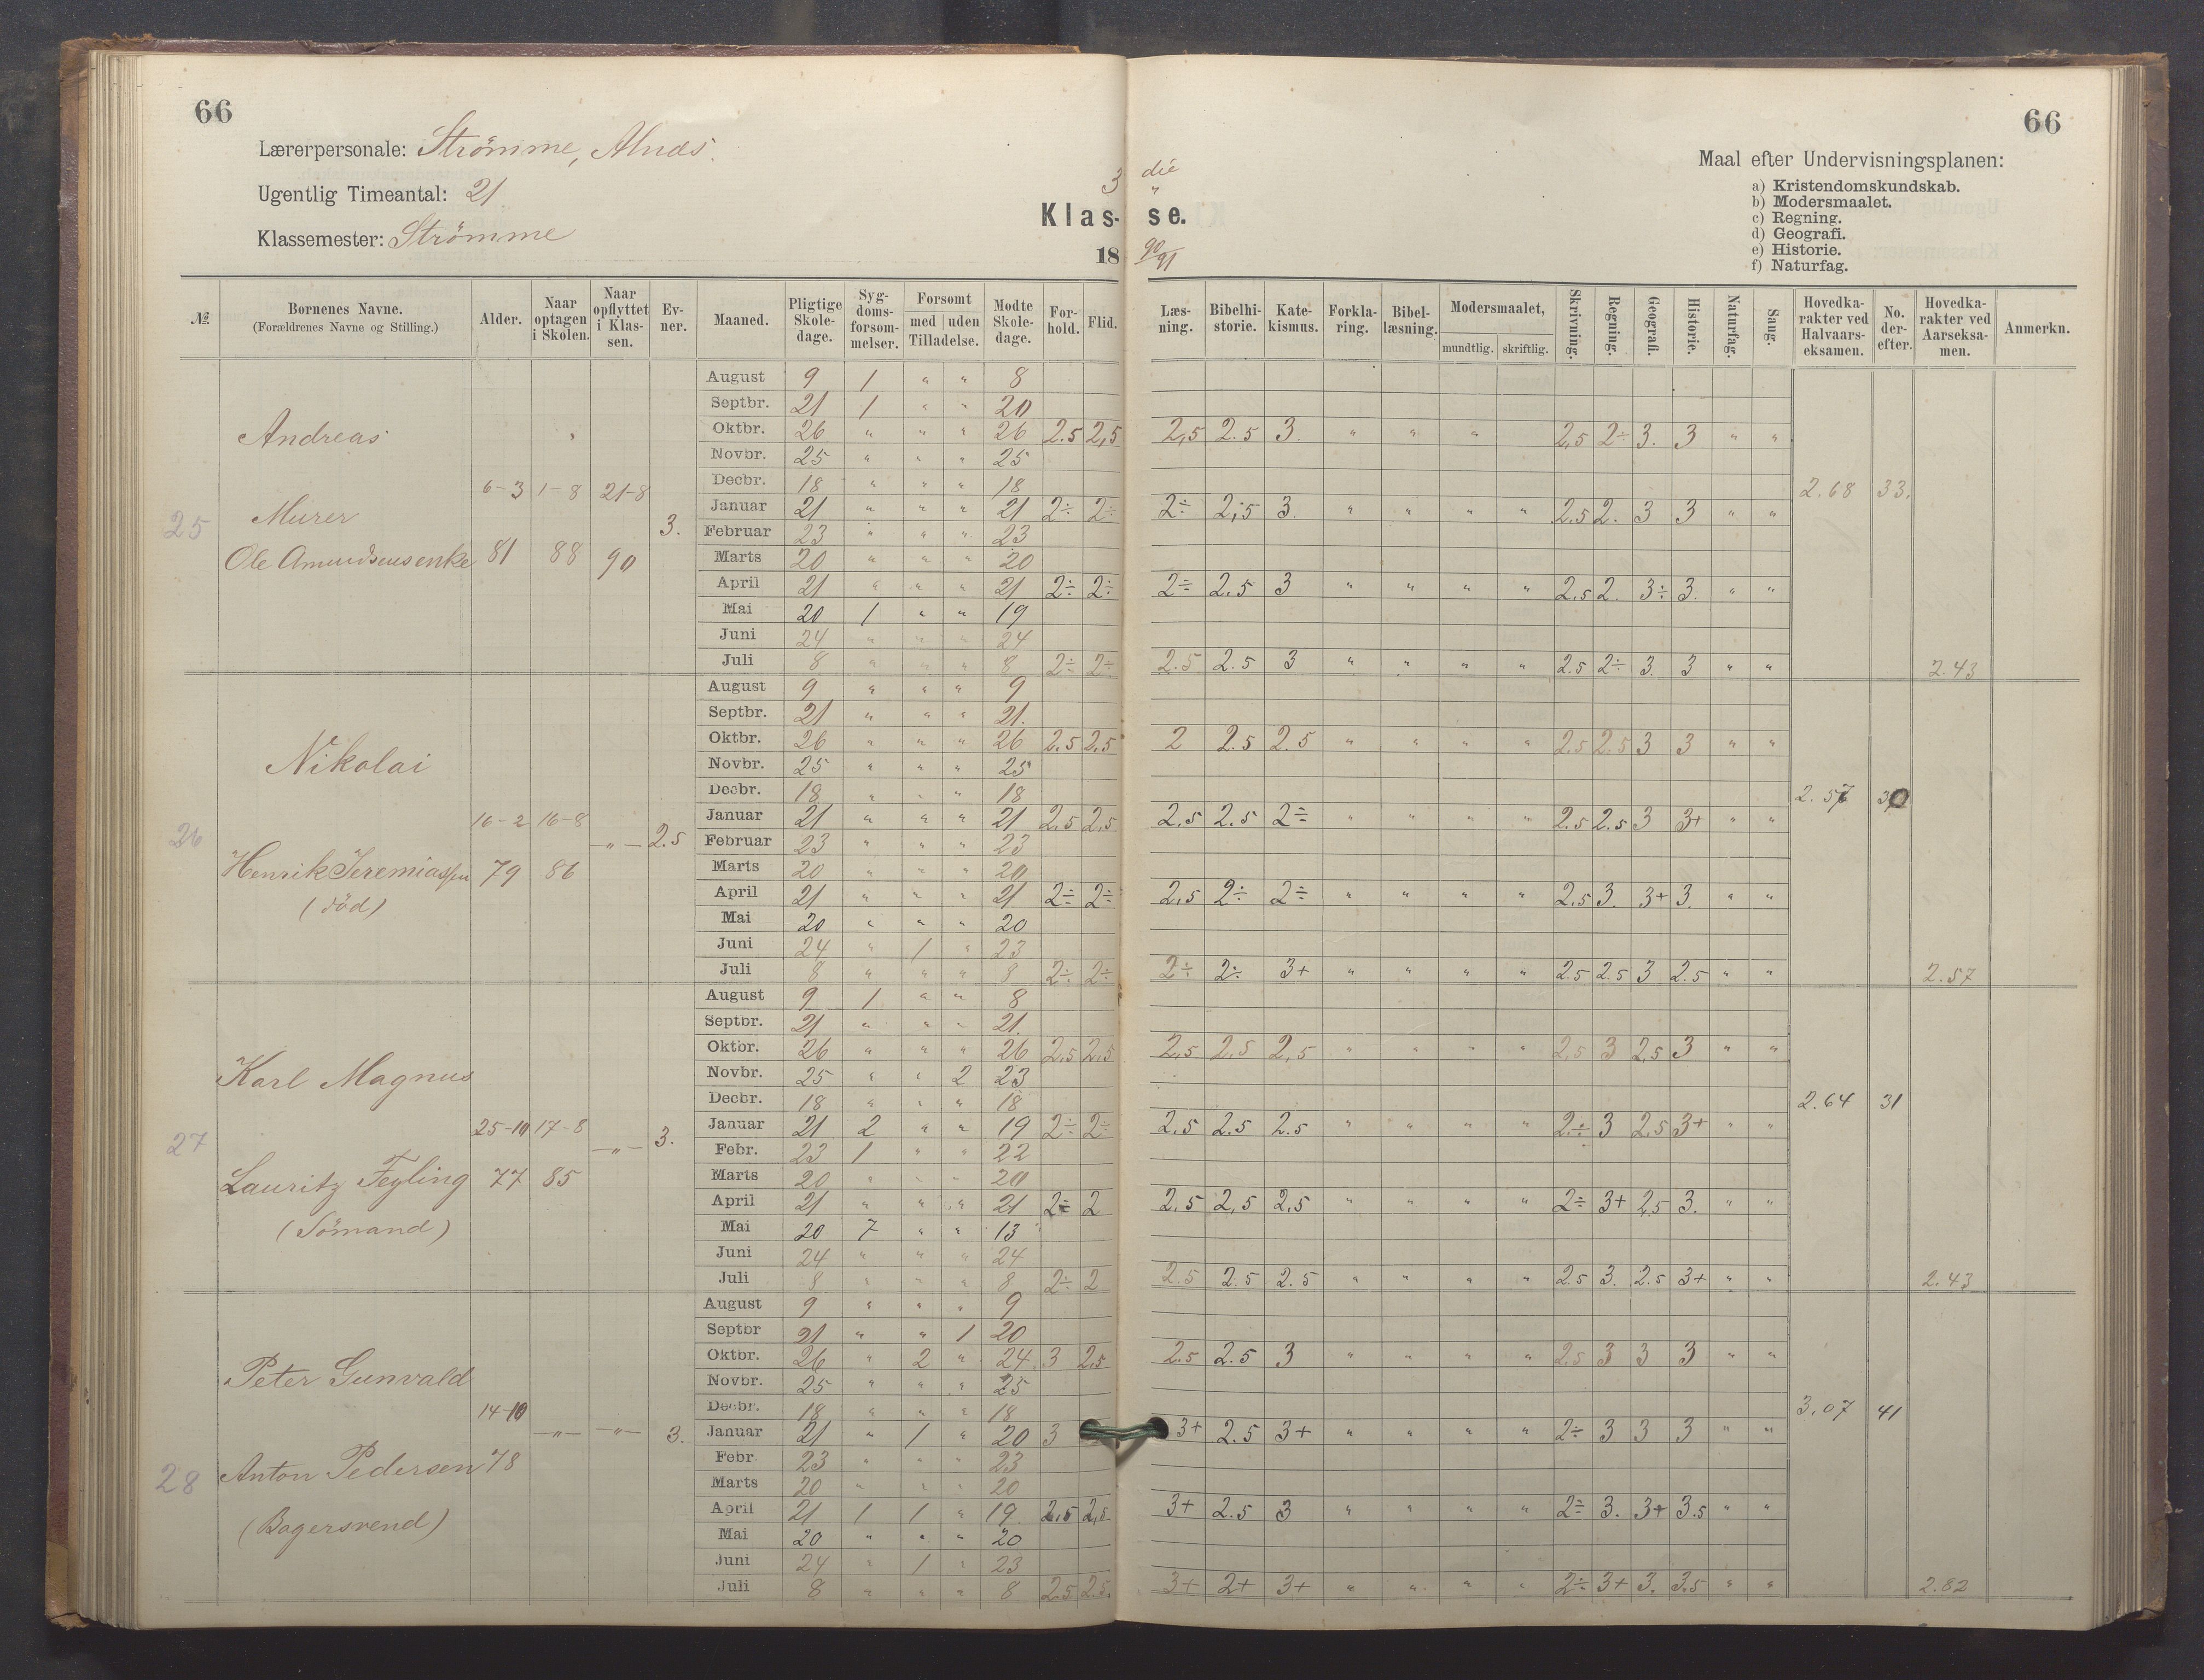 66
66
Lærerpersonale: Strömme, Alnæs.
Ugentlig Timeantal: 21
Klassemester: Strömme
3 die
Klas- se.
18 90/91
Maal efter Undervisningsplanen:
a) Kristendomskundskab.
b) Modersmaalet.
c) Regning.
d) Geografi.
e) Historie.
f) Naturfag.
№ | Børnenes Navne. (Forældrenes Navne og Stilling.) | Alder. | Naar optagen i Skolen. | Naar opflyttet i Klassen. | Evner. | Maaned. | Pligtige Skoledage. | Sygdomsforsømmelser. | Forsømt med uden Tilladelse. | Mødte Skoledage. | Forhold. | Flid. | Læsning. | Bibelhistorie. | Katekismus. | Forklaring. | Bibellæsning. | Modersmaalet, mundtlig. skriftlig. | Skrivning. | Regning. | Geografi. | Historie. | Naturfag. | Sang. | Hovedkarakter ved Halvaarseksamen. | No. derefter. | Hovedkarakter ved Aarseksamen. | Anmerkn.
25 Andreas
Murer
Ole Amundsens enke
6-3 81 | 1-8 88 | 21-8 90 | 3.
August 9 1 " " 8
Septbr. 21 1 " " 20
Oktbr. 26 " " " 26 2.5 2,5 2,5 2.5 3. " " " 2,5 2÷ 3. 3 " "
Novbr. 25 " " " 25
Decbr. 18 " " " 18 2.68 33.
Januar 21 " " " 21 2÷ 2÷ 2÷ 2,5 3. " " " " 2.5 2. 3 3 " "
Februar 23 " " " 23
Marts 20 " " " 20
April 21 " " " 21 2÷ 2÷ 2÷ 2.5 3 " " " " 2.5 2. 3÷ 3. " "
Mai 20 1 " " 19
Juni 24 " " " 24
Juli 8 " " " 8 2÷ 2÷ 2.5 2.5 3 " " " " 2.5 2÷ 3. 3 " " 2.43
26 Nikolai
Henrik Jeremiassen
(död)
16-2 79 | 16-8 86 | " | 2.5
August 9 " " " 9
Septbr. 21 " " " 21.
Oktbr. 26 " " " 26 2.5 2.5 2 2.5 2.5 " " " " 2.5 2.5 3 3 " "
Novbr. 25 " " " 25
Decbr. 18 " " " 18 2.57 30
Januar 21 " " " 21 2.5 2.5 2.5 2.5 2÷ " " " " 2.5 2.5 3 3+ " "
Februar 23 " " " 23
Marts 20 " " " 20
April 21 " " " 21 2÷ 2÷ 2,5 2÷ 2÷ " " " " 2.5 3. 3+ 3. " "
Mai 20 " " " 20
Juni 24 " 1 " 23
Juli 8 " " " 8 2÷ 2÷ 2÷ 2÷ 3+ " " " " 2.5 2.5 3 2.5 " " 2.57
27 Karl Magnus
Lauritz Feyling
(Sömand)
25-10 77 | 17-8 85 | " | 3.
August 9 1 " " 8
Septbr. 21 " " " 21.
Oktbr. 26 " " " 26 2.5 2.5 2,5 2,5 2,5 " " " " 2,5 3 2,5 3 " "
Novbr. 25 " " 2 23
Decbr. 18 " " " 18 2.64 31
Januar 21 2 " " 19 2÷ 2÷ 2.5 2.5 2.5 " " " " 2÷ 3 2,5 3+ " "
Febr. 23 1 " " 22
Marts 20 " " " 20
April 21 " " " 21 2÷ 2 2.5 2,5 2,5 " " " " 2÷ 3+ 2,5 3. " "
Mai 20 7 " " 13
Juni 24 " " " 24
Juli 8 " " " 8 2÷ 2 2.5 2.5 2.5 " " " " 2.5 3. 2.5 3+ " " 2.43
28 Peter Gunvald
Anton Pedersen
(Bagersvend)
14-10 78 | " | " | 3.
August 9 " " " 9
Septbr 21 " " 1 20
Oktbr. 26 " 2 " 24 3 2,5 2.5 2.5 3 " " " " 2.5 3 3 3 " "
Novbr. 25 " " " 25
Decbr. 18 " " " 18 3,07 41
Januar 21 " 1 " 20 3 3+ 2.5 3+ " " " " 2÷ 3 3 3 " "
Febr 23 " " " 23
Marts 20 " " " 20
April 21 1 1 " 19 2,5 2,5 3+ 2.5 3 " " " " 2÷ 3. 3+ 3.5 " "
Mai 20 " " " 20
Juni 24 " 1 " 23
Juli 8 " " " 8 2.5 2.5 3+ 2+ 3+ " " " " 2÷ 3+ 3. 3.5 " " 2.82